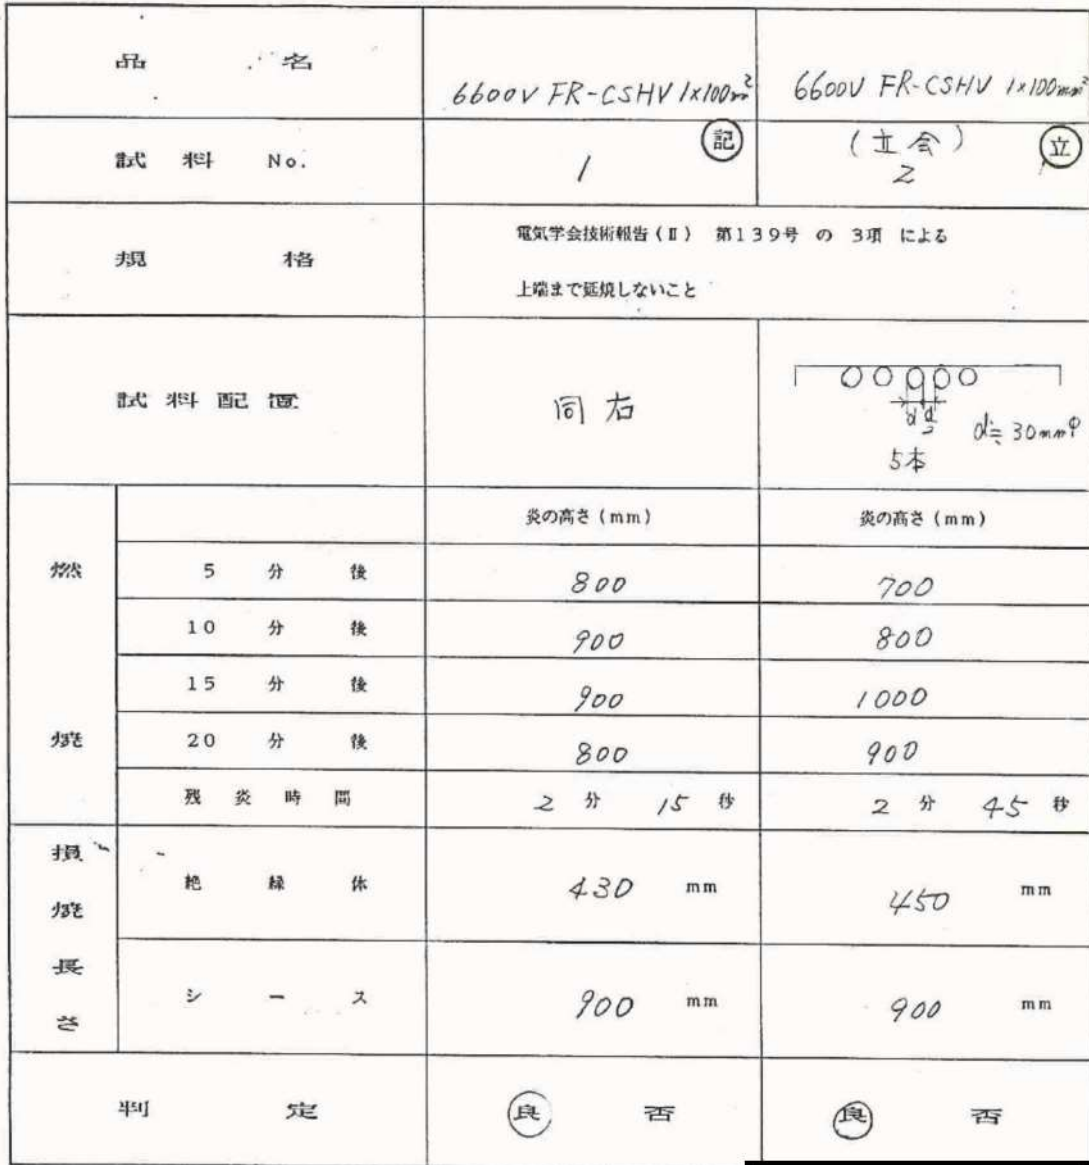 品 名 6600V FR-CSHV 1×100mm² 6600V FR-CSHV 1×100mm²
試料 No. 1 記 (立会) 2 立
規 格 電気学会技術報告(Ⅱ) 第139号 の 3項 による
上端まで延焼しないこと
試料配置 同右 d d/2 d≒30mmφ
5本
燃焼 炎の高さ(mm) 炎の高さ(mm)
5 分 後 800 700
10 分 後 900 800
15 分 後 900 1000
20 分 後 800 900
残 炎 時 間 2 分 15 秒 2 分 45 秒
損焼長さ 絶 縁 体 430 mm 450 mm
シ ー ス 900 mm 900 mm
判 定 良 否 良 否